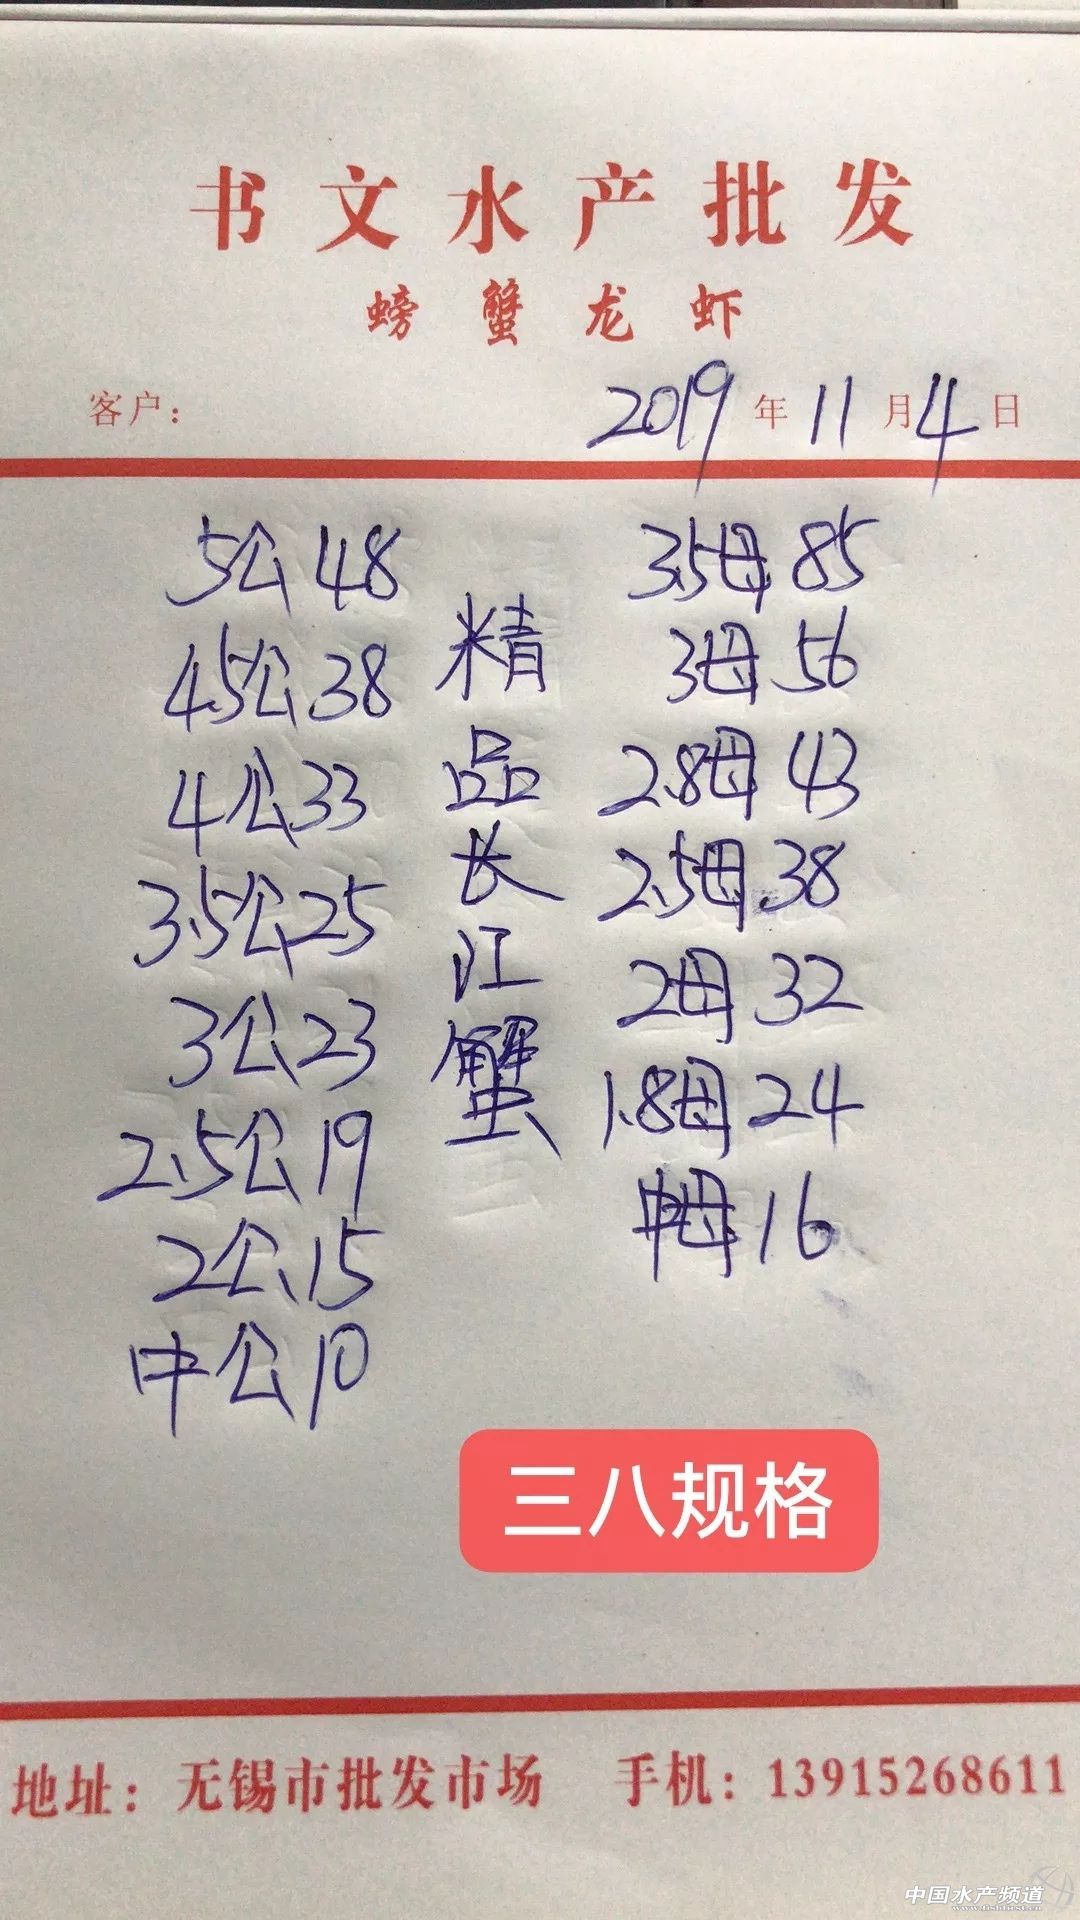 书文水产批发
螃蟹龙虾
客户：
2019年11月4日
5公48
4.5公38
4公33
3.5公25
3公23
2.5公19
2公15
中公10
精品长江蟹
3.5母85
3母56
2.8母43
2.5母38
2母32
1.8母24
中母16
三八规格
地址：无锡市批发市场 手机：13915268611
中国水产频道